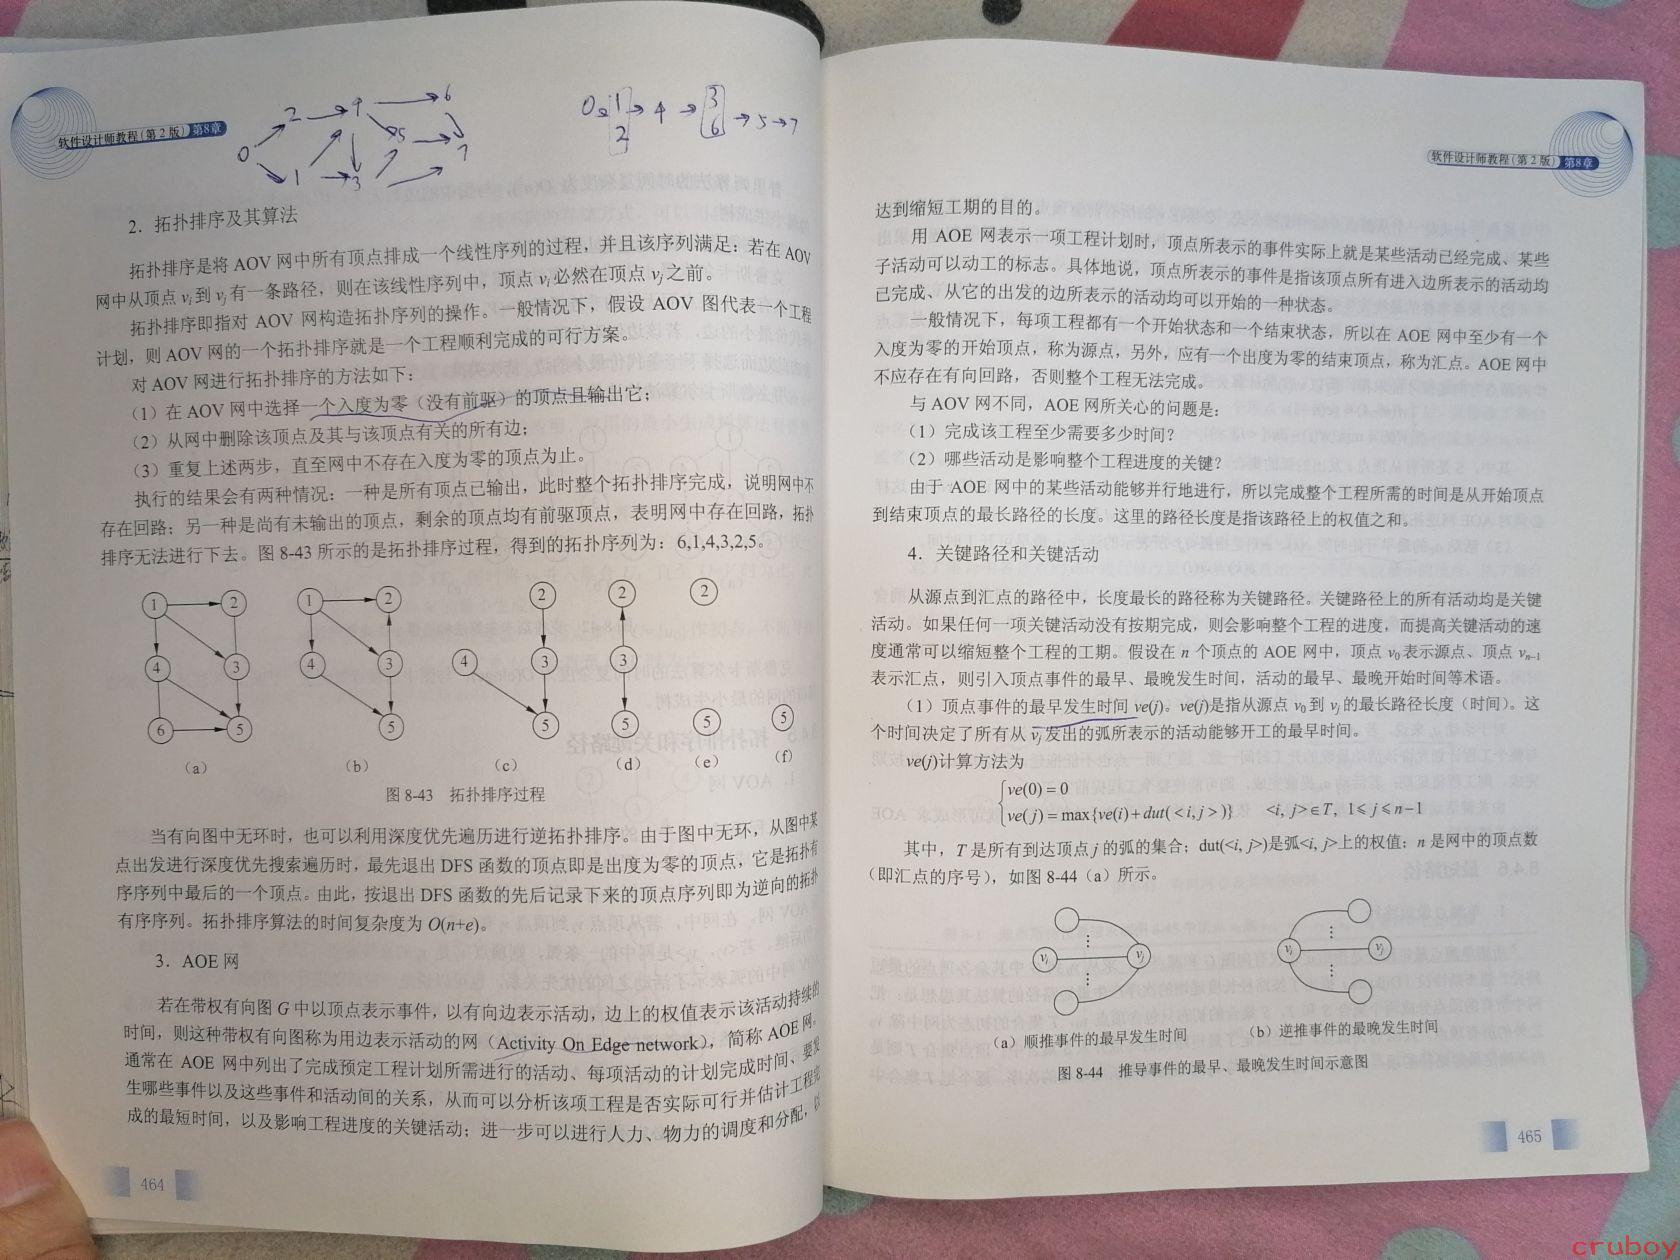 软件设计师教程（第2版） 第8章
2 → 4 → 6
0 5 7
1 → 3
0 1 2 → 4 → 3 6 → 5 → 7
2．拓扑排序及其算法
拓扑排序是将 AOV 网中所有顶点排成一个线性序列的过程，并且该序列满足：若在 AOV
网中从顶点 vi 到 vj 有一条路径，则在该线性序列中，顶点 vi 必然在顶点 vj 之前。
拓扑排序即指对 AOV 网构造拓扑序列的操作。一般情况下，假设 AOV 图代表一个工程
计划，则 AOV 网的一个拓扑排序就是一个工程顺利完成的可行方案。
对 AOV 网进行拓扑排序的方法如下：
（1）在 AOV 网中选择一个入度为零（没有前驱）的顶点且输出它；
（2）从网中删除该顶点及其与该顶点有关的所有边；
（3）重复上述两步，直至网中不存在入度为零的顶点为止。
执行的结果会有两种情况：一种是所有顶点已输出，此时整个拓扑排序完成，说明网中不
存在回路；另一种是尚有未输出的顶点，剩余的顶点均有前驱顶点，表明网中存在回路，拓扑
排序无法进行下去。图 8-43 所示的是拓扑排序过程，得到的拓扑序列为：6,1,4,3,2,5。
1 2 1 2 2 2 2
4 3 4 3 4 3 3
6 5 5 5 5 5 5
（a） （b） （c） （d） （e） （f）
图 8-43 拓扑排序过程
当有向图中无环时，也可以利用深度优先遍历进行逆拓扑排序。由于图中无环，从图中某
点出发进行深度优先搜索遍历时，最先退出 DFS 函数的顶点即是出度为零的顶点，它是拓扑有
序序列中最后的一个顶点。由此，按退出 DFS 函数的先后记录下来的顶点序列即为逆向的拓扑
有序序列。拓扑排序算法的时间复杂度为 O(n+e)。
3．AOE 网
若在带权有向图 G 中以顶点表示事件，以有向边表示活动，边上的权值表示该活动持续的
时间，则这种带权有向图称为用边表示活动的网（Activity On Edge network），简称 AOE 网。
通常在 AOE 网中列出了完成预定工程计划所需进行的活动、每项活动的计划完成时间、要发
生哪些事件以及这些事件和活动间的关系，从而可以分析该项工程是否实际可行并估计工程完
成的最短时间，以及影响工程进度的关键活动；进一步可以进行人力、物力的调度和分配，以
464
软件设计师教程（第2版） 第8章
达到缩短工期的目的。
用 AOE 网表示一项工程计划时，顶点所表示的事件实际上就是某些活动已经完成、某些
子活动可以动工的标志。具体地说，顶点所表示的事件是指该顶点所有进入边所表示的活动均
已完成、从它的出发的边所表示的活动均可以开始的一种状态。
一般情况下，每项工程都有一个开始状态和一个结束状态，所以在 AOE 网中至少有一个
入度为零的开始顶点，称为源点，另外，应有一个出度为零的结束顶点，称为汇点。AOE 网中
不应存在有向回路，否则整个工程无法完成。
与 AOV 网不同，AOE 网所关心的问题是：
（1）完成该工程至少需要多少时间？
（2）哪些活动是影响整个工程进度的关键？
由于 AOE 网中的某些活动能够并行地进行，所以完成整个工程所需的时间是从开始顶点
到结束顶点的最长路径的长度。这里的路径长度是指该路径上的权值之和。
4．关键路径和关键活动
从源点到汇点的路径中，长度最长的路径称为关键路径。关键路径上的所有活动均是关键
活动。如果任何一项关键活动没有按期完成，则会影响整个工程的进度，而提高关键活动的速
度通常可以缩短整个工程的工期。假设在 n 个顶点的 AOE 网中，顶点 v0 表示源点、顶点 vn-1
表示汇点，则引入顶点事件的最早、最晚发生时间，活动的最早、最晚开始时间等术语。
（1）顶点事件的最早发生时间 ve(j)。ve(j)是指从源点 v0 到 vj 的最长路径长度（时间）。这
个时间决定了所有从 vj 发出的弧所表示的活动能够开工的最早时间。
ve(j)计算方法为
ve(0) = 0
ve(j) = max{ve(i) + dut(<i, j>)} <i, j>∈T, 1≤j≤n-1
其中，T 是所有到达顶点 j 的弧的集合；dut(<i, j>)是弧<i, j>上的权值；n 是网中的顶点数
（即汇点的序号），如图 8-44（a）所示。
vi vj vi vj
（a）顺推事件的最早发生时间 （b）逆推事件的最晚发生时间
图 8-44 推导事件的最早、最晚发生时间示意图
465
cruboy